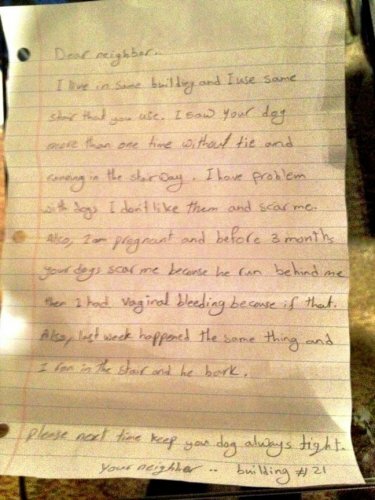 Dear neighbor..
I live in same building and I use same
stair that you use. I saw your dog
more than one time without tie and
running in the stair Day. I have problem
with dogs I don't like them and scar me.
Also, I am pregnant and before 3 months
your dogs scar me becouse he run behind me
then I had vaginal bleeding becouse if that.
Also, last week happened the same thing and
I ran in the stair and he bark.
please next time keep your dog always tight.
your neighbor .. building #21